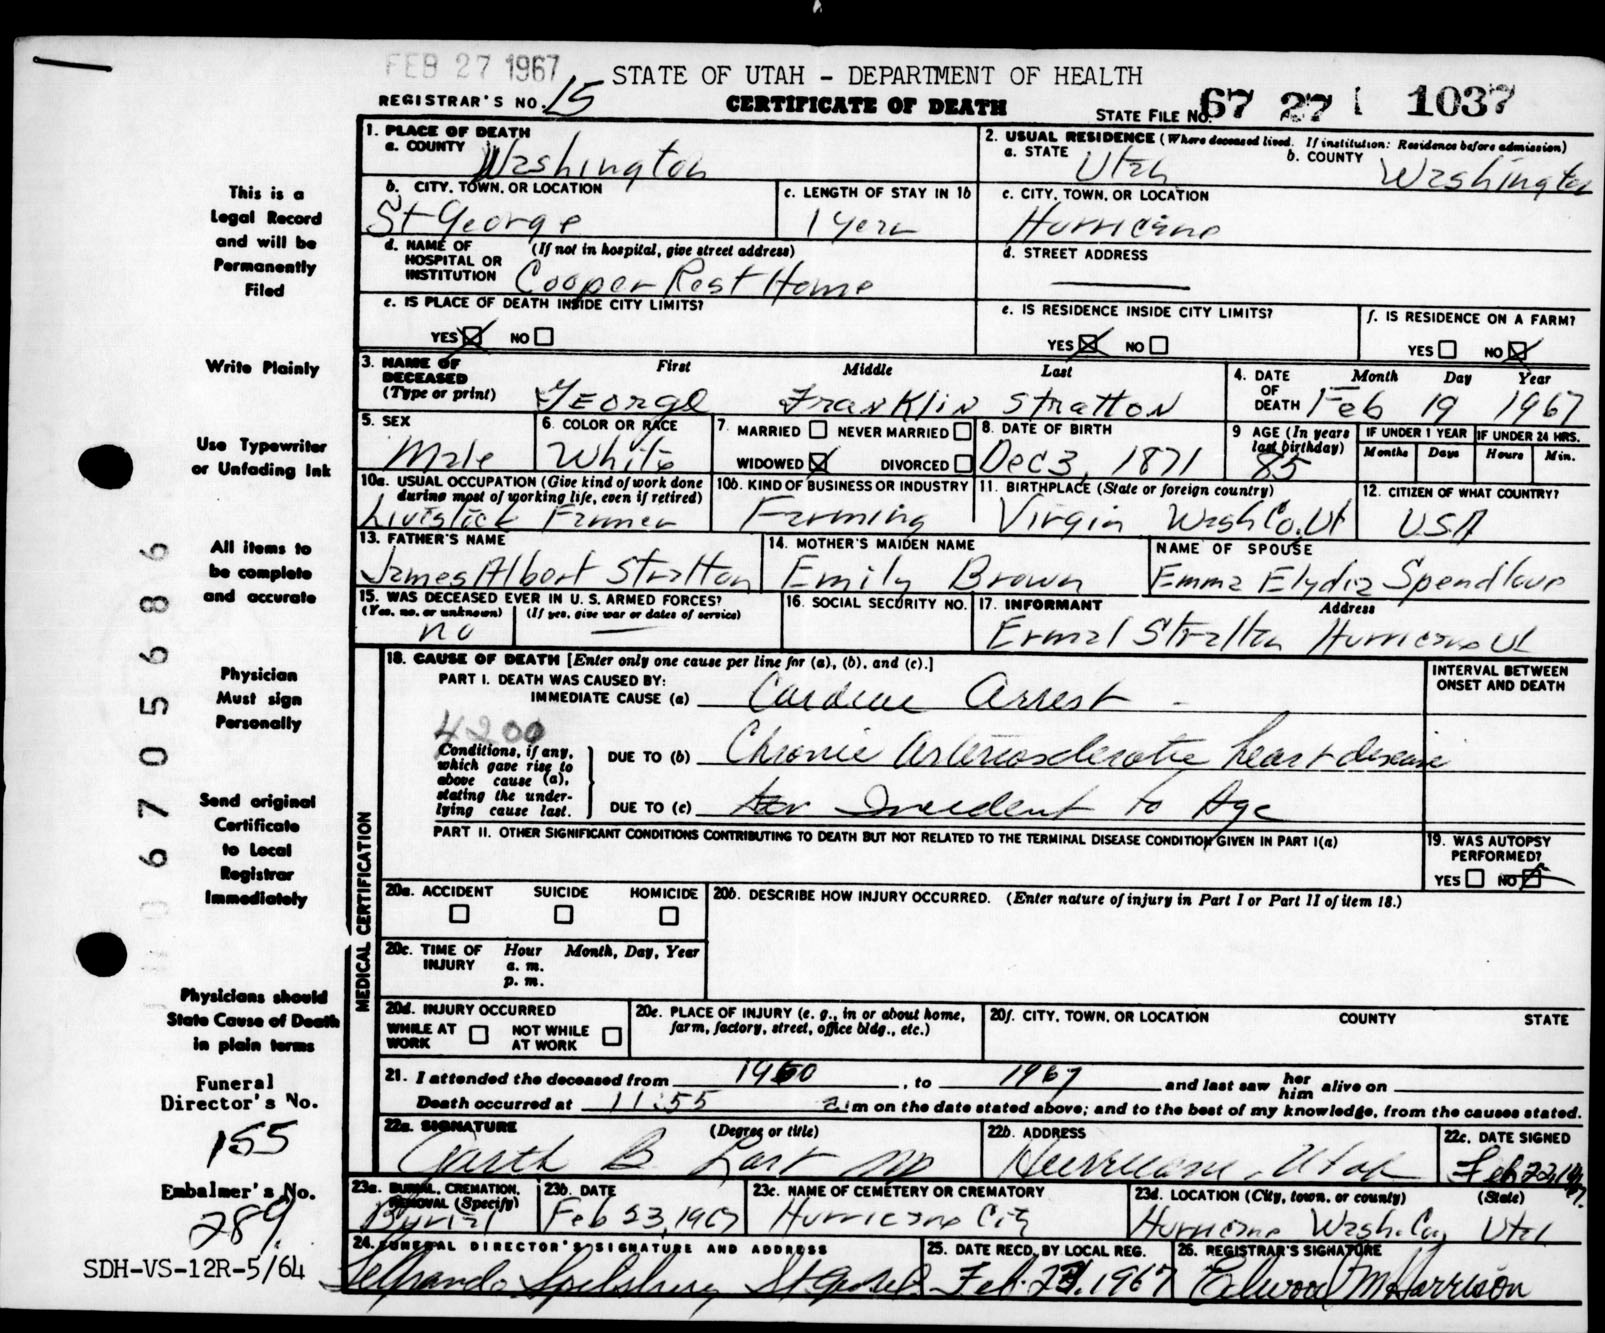 FEB 27 1967
STATE OF UTAH - DEPARTMENT OF HEALTH
REGISTRAR'S NO. 15
CERTIFICATE OF DEATH
STATE FILE NO. 67 27 1 1037
This is a
Legal Record
and will be
Permanently
Filed
Write Plainly
Use Typewriter
or Unfading Ink
All items to
be complete
and accurate
Physician
Must sign
Personally
Send original
Certificate
to Local
Registrar
Immediately
Physicians should
State Cause of Death
in plain terms
Funeral
Director's No.
155
Embalmer's No.
289
SDH-VS-12R-5/64
06705686
1. PLACE OF DEATH
a. COUNTY Washington
2. USUAL RESIDENCE (Where deceased lived. If institution: Residence before admission)
a. STATE Utah b. COUNTY Washington
b. CITY, TOWN, OR LOCATION St George
c. LENGTH OF STAY IN 1b 1 Year
c. CITY, TOWN, OR LOCATION Hurricane
d. NAME OF HOSPITAL OR INSTITUTION (If not in hospital, give street address) Cooper Rest Home
d. STREET ADDRESS
e. IS PLACE OF DEATH INSIDE CITY LIMITS?
YES NO
e. IS RESIDENCE INSIDE CITY LIMITS?
YES NO
f. IS RESIDENCE ON A FARM?
YES NO
3. NAME OF DECEASED (Type or print) First Middle Last
George Franklin Stratton
4. DATE OF DEATH Month Day Year
Feb 19 1967
5. SEX Male
6. COLOR OR RACE White
7. MARRIED NEVER MARRIED
WIDOWED DIVORCED
8. DATE OF BIRTH Dec 3, 1871
9 AGE (In years last birthday) 85
IF UNDER 1 YEAR IF UNDER 24 HRS.
Months Days Hours Min.
10a. USUAL OCCUPATION (Give kind of work done during most of working life, even if retired)
Livestock Farmer
10b. KIND OF BUSINESS OR INDUSTRY Farming
11. BIRTHPLACE (State or foreign country) Virgin Wash Co. Ut
12. CITIZEN OF WHAT COUNTRY? USA
13. FATHER'S NAME James Albert Stratton
14. MOTHER'S MAIDEN NAME Emily Brown
NAME OF SPOUSE Emma Elydia Spendlove
15. WAS DECEASED EVER IN U. S. ARMED FORCES?
(Yes, no, or unknown) (If yes, give war or dates of service)
no
16. SOCIAL SECURITY NO.
17. INFORMANT Address
Ermal Stratton Hurricane Ut
MEDICAL CERTIFICATION
18. CAUSE OF DEATH [Enter only one cause per line for (a), (b), and (c).]
INTERVAL BETWEEN ONSET AND DEATH
PART I. DEATH WAS CAUSED BY:
IMMEDIATE CAUSE (a) Cardiac Arrest
4200
Conditions, if any, which gave rise to above cause (a), stating the underlying cause last.
DUE TO (b) Chronic Arteriosclerotic heart disease
DUE TO (c) Incident to Age
PART II. OTHER SIGNIFICANT CONDITIONS CONTRIBUTING TO DEATH BUT NOT RELATED TO THE TERMINAL DISEASE CONDITION GIVEN IN PART I(a)
19. WAS AUTOPSY PERFORMED?
YES NO
20a. ACCIDENT SUICIDE HOMICIDE
20b. DESCRIBE HOW INJURY OCCURRED. (Enter nature of injury in Part I or Part II of item 18.)
20c. TIME OF INJURY Hour Month, Day, Year
a. m.
p. m.
20d. INJURY OCCURRED
WHILE AT WORK NOT WHILE AT WORK
20e. PLACE OF INJURY (e. g., in or about home, farm, factory, street, office bldg., etc.)
20f. CITY, TOWN, OR LOCATION COUNTY STATE
21. I attended the deceased from 1960, to 1967 and last saw her him alive on
Death occurred at 11:55 a.m on the date stated above; and to the best of my knowledge, from the causes stated.
22a. SIGNATURE (Degree or title)
Garth B Last MD
22b. ADDRESS Hurricane, Utah
22c. DATE SIGNED Feb 22, 1967.
23a. BURIAL, CREMATION, REMOVAL (Specify) Burial
23b. DATE Feb 23, 1967
23c. NAME OF CEMETERY OR CREMATORY Hurricane City
23d. LOCATION (City, town, or county) (State)
Hurricane Wash. Co, Utah
24. FUNERAL DIRECTOR'S SIGNATURE AND ADDRESS
Spilsbury St George
25. DATE RECD. BY LOCAL REG.
Feb. 23, 1967
26. REGISTRAR'S SIGNATURE